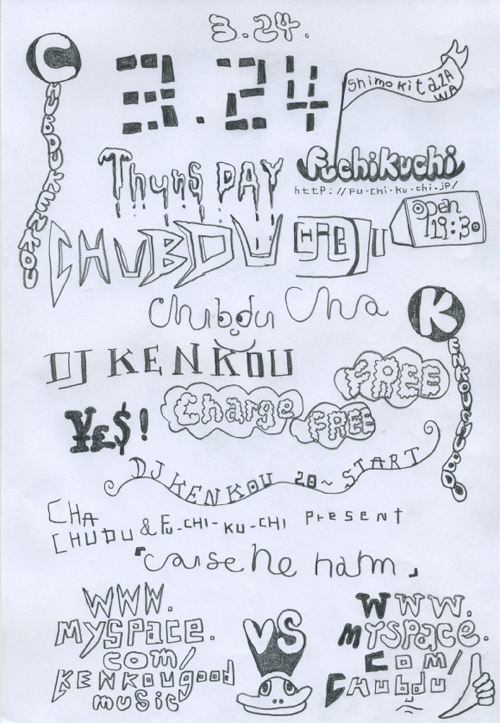 3.24.
3.24
Shimokitaza
WA
C
HUBDUKENKOU
ThursDAY
Fuchikuchi
http://fu-chi-ku-chi.jp/
Open
19:30
CHUBDU
Chubdu Cha
K
ENKOUCHUBDU
DJ KENKOU
FREE
Charge FREE
¥£$!
DJ KENKOU 20~START
CHA
CHUBU & Fu-CHI-KU-CHI Present
「caise he nahm」
WWW.
myspace.
com/
KENKOUgood
music
VS
WWW.
myspace.
com/
Chubdu